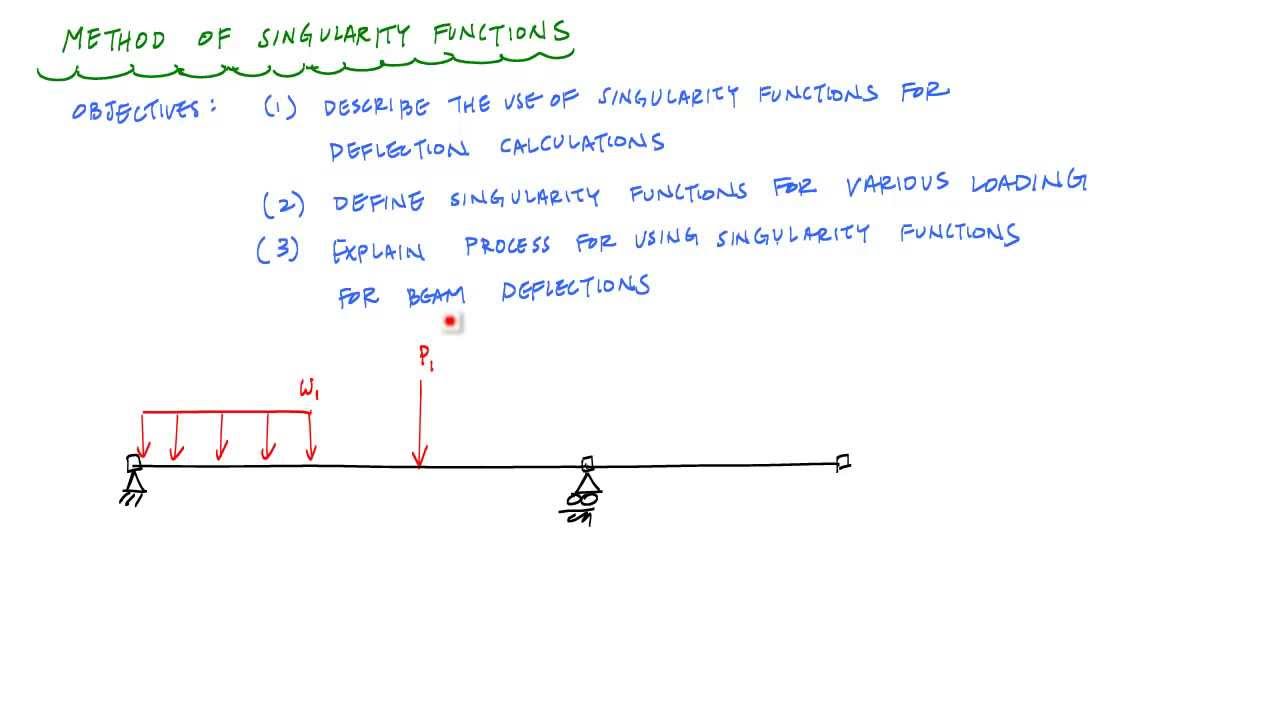 METHOD OF SINGULARITY FUNCTIONS
OBJECTIVES: (1) DESCRIBE THE USE OF SINGULARITY FUNCTIONS FOR
DEFLECTION CALCULATIONS
(2) DEFINE SINGULARITY FUNCTIONS FOR VARIOUS LOADING
(3) EXPLAIN PROCESS FOR USING SINGULARITY FUNCTIONS
FOR BEAM DEFLECTIONS
P₁
W₁